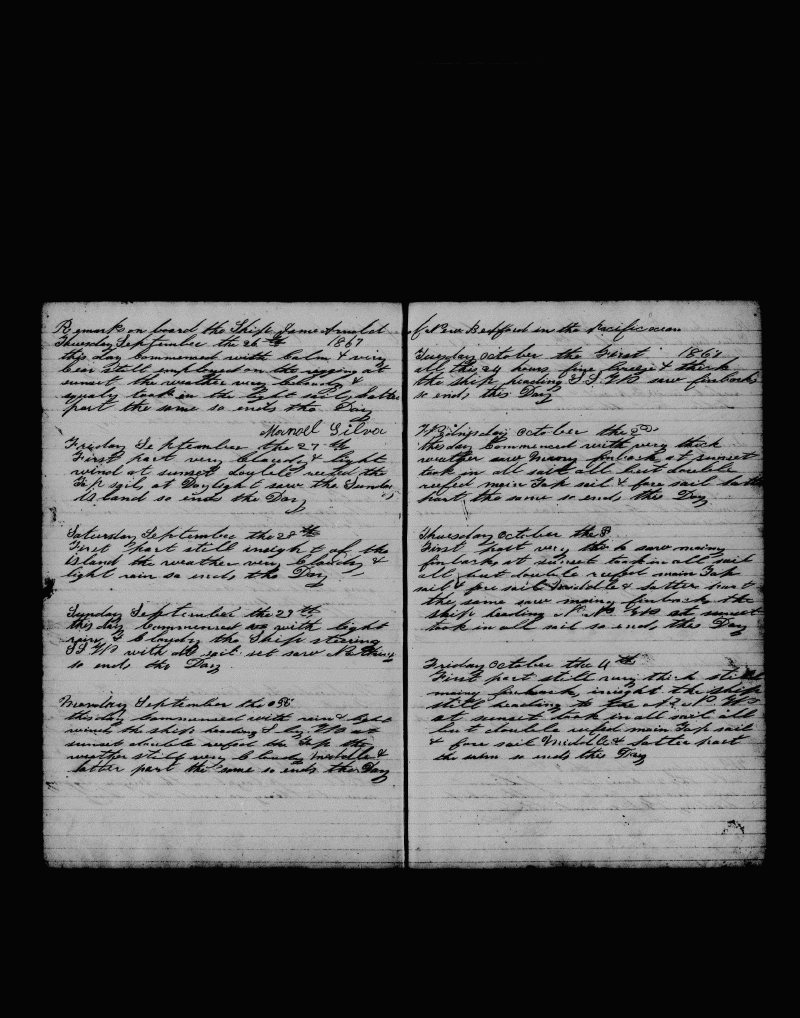 Remarks on board the Ship James Arnold
Thursday September the 26th 1867
this day Commenced with Calm & very
Clear still employed on the rigging at
sunset the weather very Cloudy &
squaly took in the light sails Latter
part the same so ends the Day
Manoel Silva
Friday September the 27th
First part very Cloudy & light
wind at sunset Doubled reefed the
Top sails at Daylight saw the Sunday
Island so ends the Day
Saturday September the 28th
First part still insight of the
island the weather very Cloudy &
light rain so ends the Day
Sunday September the 29th
this day Commenced with light
rain & Cloudy the Ship stering
S S W with all sail set saw Nothing
so ends the Day
Monday September the 30
this day Commenced with rain & light
wind the ship heading S by W at
sunset double reefed the Top the
weather still very Cloudy middle &
latter part the same so ends the Day
of New Bedford in the Pacific ocean
Tuesday October the First 1867
all this 24 hours fine breeze & thick
the ship heading S S W saw finbacks
so ends this Day
October the 2D
this day Commenced with very thick
weather saw many finback at sunset
took in all sail all but double
reefed main Top sail & fore sail latter
part the same so ends this Day
Thursday October the 3
First part very thick saw mainy
finbacks at sunset took in all sail
all but double reefed main Top
sail & fore sail Middle & latter part
the same saw mainy finback the
ship heading at sunset
took in all sail so ends this Day
Friday October the 4th
First part still very thick still
mainy finback insight the ship
still heading to the
at sunset took in all sail all
but double reefed main Top sail
& fore sail Middle & latter part
the same so ends this Day